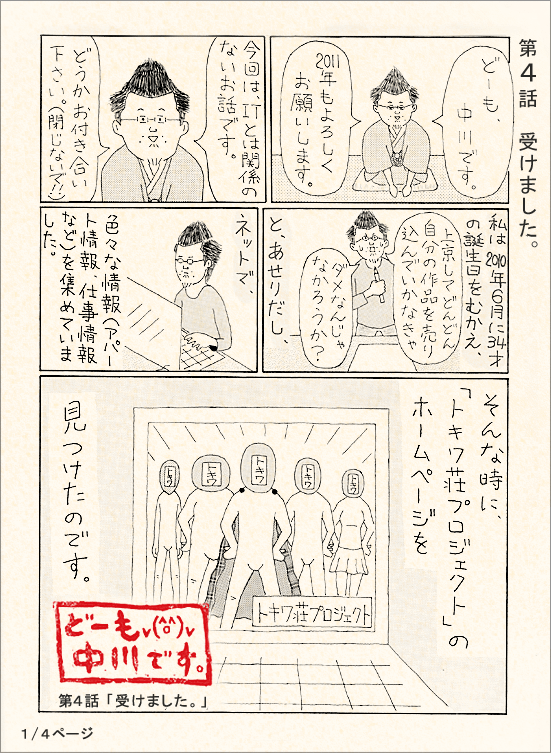 第4話 受けました。
どーも、
中川です。
2011
年もよろしく
お願いします。
今回は、ITとは関係の
ないお話です。
どうかお付き合い
下さい。(閉じないで!!)
私は2010年6月に34才
の誕生日をむかえ、
上京してどんどん
自分の作品を売り
込んでいかなきゃ
ダメなんじゃ
なかろうか?
と、あせりだし、
ネットで、
色々な情報(アパー
ト情報、仕事情報
など)を集めていま
した。
そんな時に、
「トキワ荘プロジェクト」の
ホームページを
トキワ
トキワ
トキワ
トキワ
トキワ
トキワ荘プロジェクト
見つけたのです。
どーもv(^o^)v
中川です。
第4話「受けました。」
1/4ページ